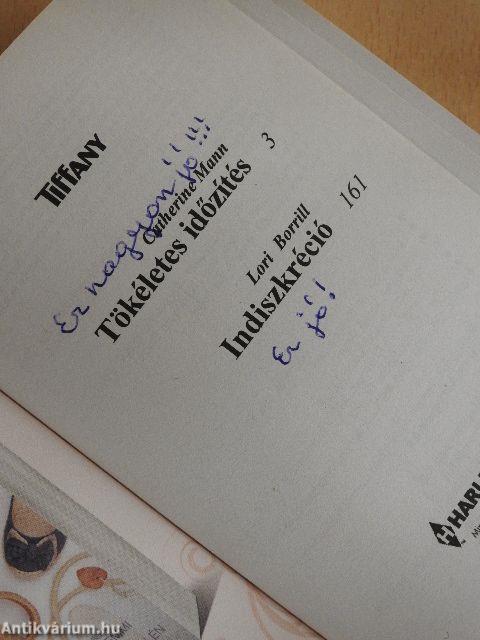 Tiffany
Ez nagyon jó!!!
Catherine Mann
Tökéletes időzítés 3
Lori Borrill
Indiszkréció 161
Ez jó!
HARL
Antikvárium.hu